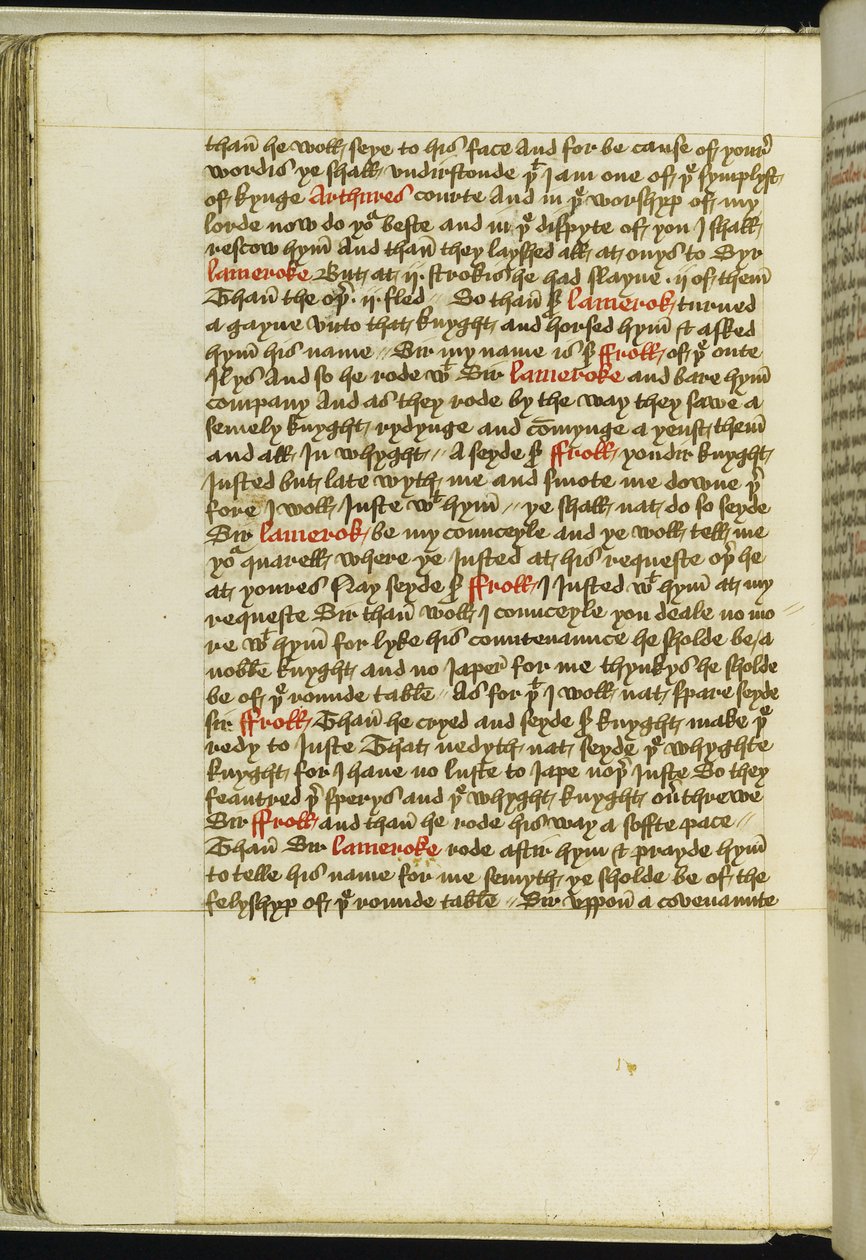 than̄ he woll seye to his face And for be cause of youre
wordis ye shall vndirstonde þᵗ I am one of þᵉ symplyst
of kynge Arthures courte And in þᵉ worshyp of my
lorde now do yoʳ beste and in þᵉ dispyte of you I shall
rescow hym̄ And than̄ they layshed all at onys to Syr
lameroke But at .ij. strokis he had slayne .ij of them̄
Than̄ the oþʳ .ij. fled // So than̄ sʳ lamerok turned
a gayne vnto that knyght and horsed hym̄ & asked
hym̄ his name // Sir my name is sʳ ffroll of þᵉ oute
Ilys And so he rode wᵗ Sir lameroke and bare hym̄
company And as they rode by the way they sawe a
semely knyght rydynge and com̄ynge a yenst them̄
and all In whyght // A seyde sʳ ffroll yondir knyght
Iusted but late wyth me and smote me downe þʳ
fore I woll Iuste wᵗ hym̄ // ye shall nat do so seyde
Sir lamerok be my counceyle and ye woll tell me
yoʳ quarell where ye Iusted at his requeste oþʳ he
at youres Nay seyde sʳ ffroll I Iusted wᵗ hym̄ at my
requeste Sir than̄ woll I counceyle you deale no mo //
re wᵗ hym̄ for lyke his countenaunce he sholde be a
noble knyght and no Iaper for me thynkys he sholde
be of þᵉ rounde table // As for þᵗ I woll nat spare seyde
sir ffroll Than̄ he cryed and seyde sʳ knyght make þᵉ
redy to Iuste That nedyth nat seyde þᵉ whyghte
knyght for I haue no luste to Iape noþʳ Iuste So they
feautred þʳ sperys and þᵉ whyght knyght ouʳthrewe
Sir ffroll and than̄ he rode his way a soffte pace //
Than̄ Sir lameroke rode aftir hym & prayde hym̄
to telle his name for me semyth ye sholde be of the
felyshyp of þᵉ rounde table // Sir vppon̄ a covenaunte